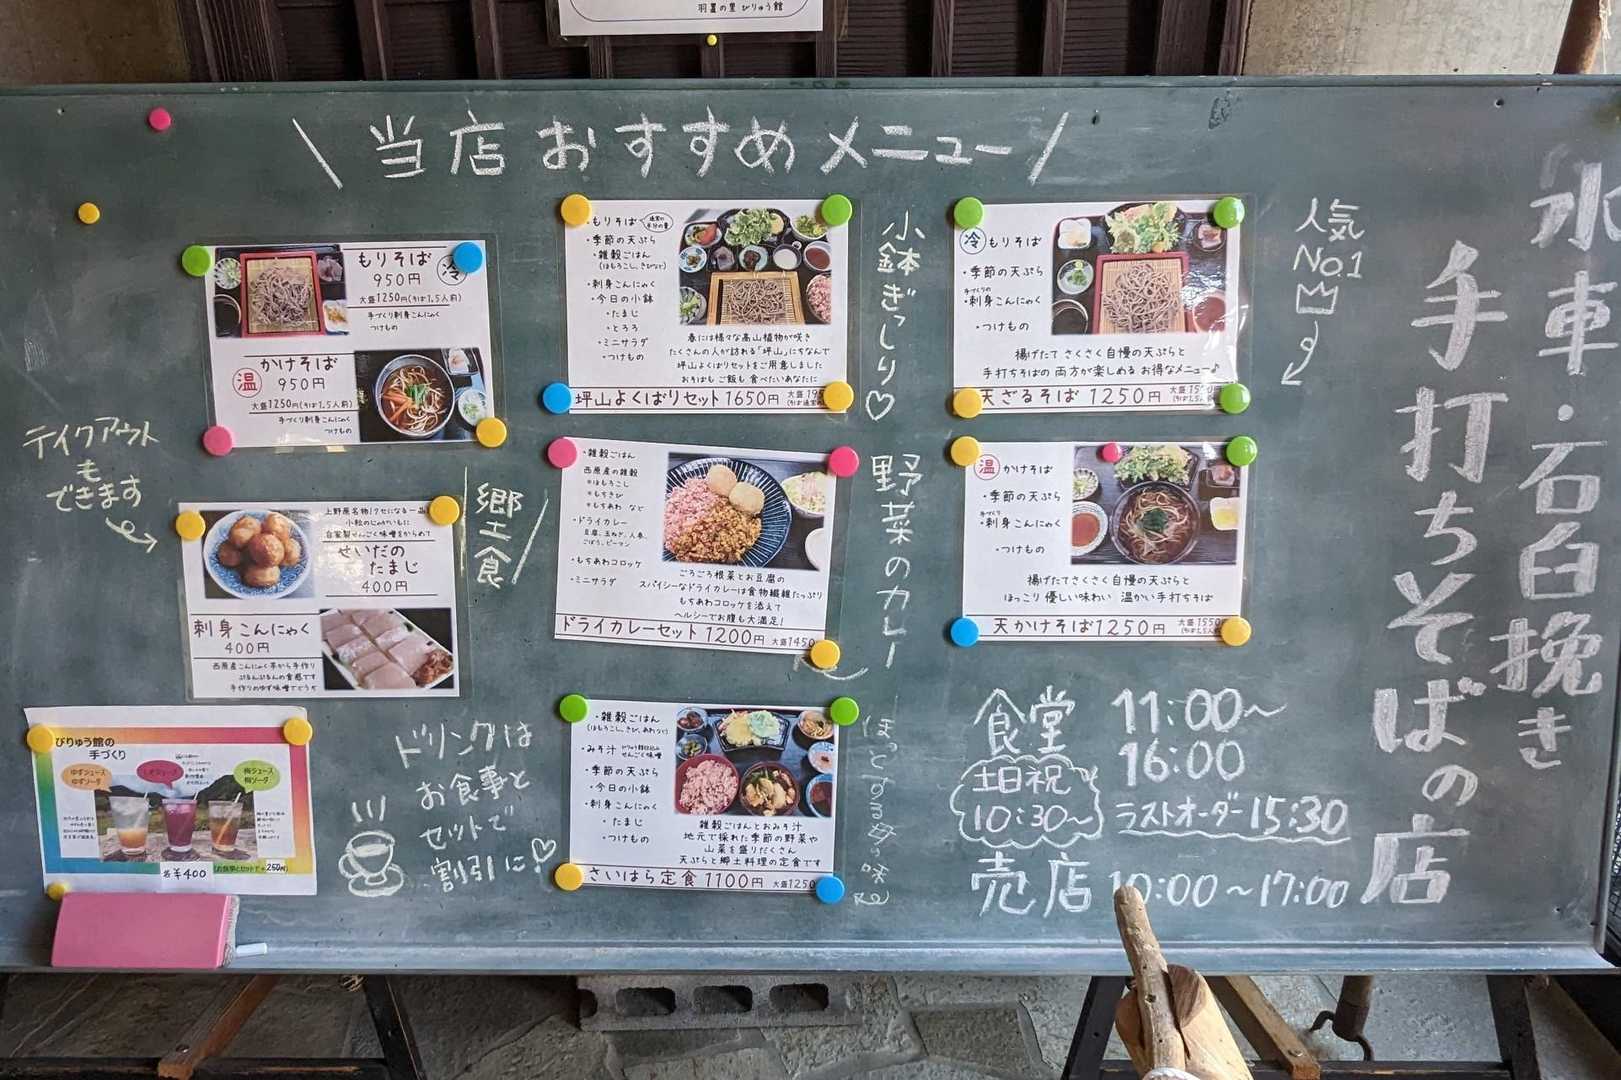 羽置の里 びりゅう館
\ 当店おすすめメニュー /
水車・石臼挽き
手打ちそばの店
もりそば 冷
950円
大盛1250円(そば1.5人前)
手づくり刺身こんにゃく
つけもの
かけそば
温 950円
大盛1250円(そば1.5人前)
手づくり刺身こんにゃく
つけもの
・もりそば 通常の半分の量
・季節の天ぷら
・雑穀ごはん
(ほもろこし、きびなど)
・刺身こんにゃく
・今日の小鉢
・たまじ
・とろろ
・ミニサラダ
・つけもの
春には様々な高山植物が咲き
たくさんの人が訪れる「坪山」にちなんで
坪山よくばりセットをご用意しました
おそばも ご飯も 食べたいあなたに
坪山よくばりセット1650円
小鉢ぎっしり♡
冷 もりそば
・季節の天ぷら
手づくりの
・刺身こんにゃく
・つけもの
揚げたて さくさく 自慢の天ぷらと
手打ちそばの 両方が楽しめる お得なメニュー♪
天ざるそば 1250円
人気
No.1
テイクアウト
も
できます
上野原名物!クセになる一品
小粒のじゃがいもに
自家製せんごく味噌をからめて
せいだの
たまじ
400円
刺身こんにゃく
400円
西原産こんにゃく芋から手作り
ぷるんぷるんの食感です
手作りのゆず味噌でどうぞ
郷土食
・雑穀ごはん
西原産の雑穀
*ほもろこし
*もちきび
*もちあわ など
・ドライカレー
豆腐、玉ねぎ、人参、
ごぼう、ピーマン
・もちあわコロッケ
・ミニサラダ
ごろごろ根菜とお豆腐の
スパイシーなドライカレーは食物繊維たっぷり
もちあわコロッケを添えて
ヘルシーでお腹も大満足!
ドライカレーセット1200円 大盛1450
野菜のカレー
温 かけそば
・季節の天ぷら
手づくり
・刺身こんにゃく
・つけもの
揚げたてさくさく自慢の天ぷらと
ほっこり 優しい味わい 温かい手打ちそば
天かけそば1250円 大盛1550
びりゅう館の
手づくり
ゆずジュース
ゆずソーダ
しそジュース
梅ジュース
梅ソーダ
各¥400
お食事とセットで＋250円
ドリンクは
お食事と
セットで
割引に!♡
・雑穀ごはん
(ほもろこし、きび、あわなど)
・みそ汁 びりゅう館仕込み せんごく味噌
・季節の天ぷら
・今日の小鉢
・刺身こんにゃく
・たまじ
・つけもの
雑穀ごはんとおみそ汁
地元で採れた季節の野菜や
山菜を盛りだくさん
天ぷらと郷土料理の定食です
さいはら定食 1100円 大盛1250
食堂 11:00〜
16:00
土日祝
10:30〜
ラストオーダー15:30
売店 10:00〜17:00